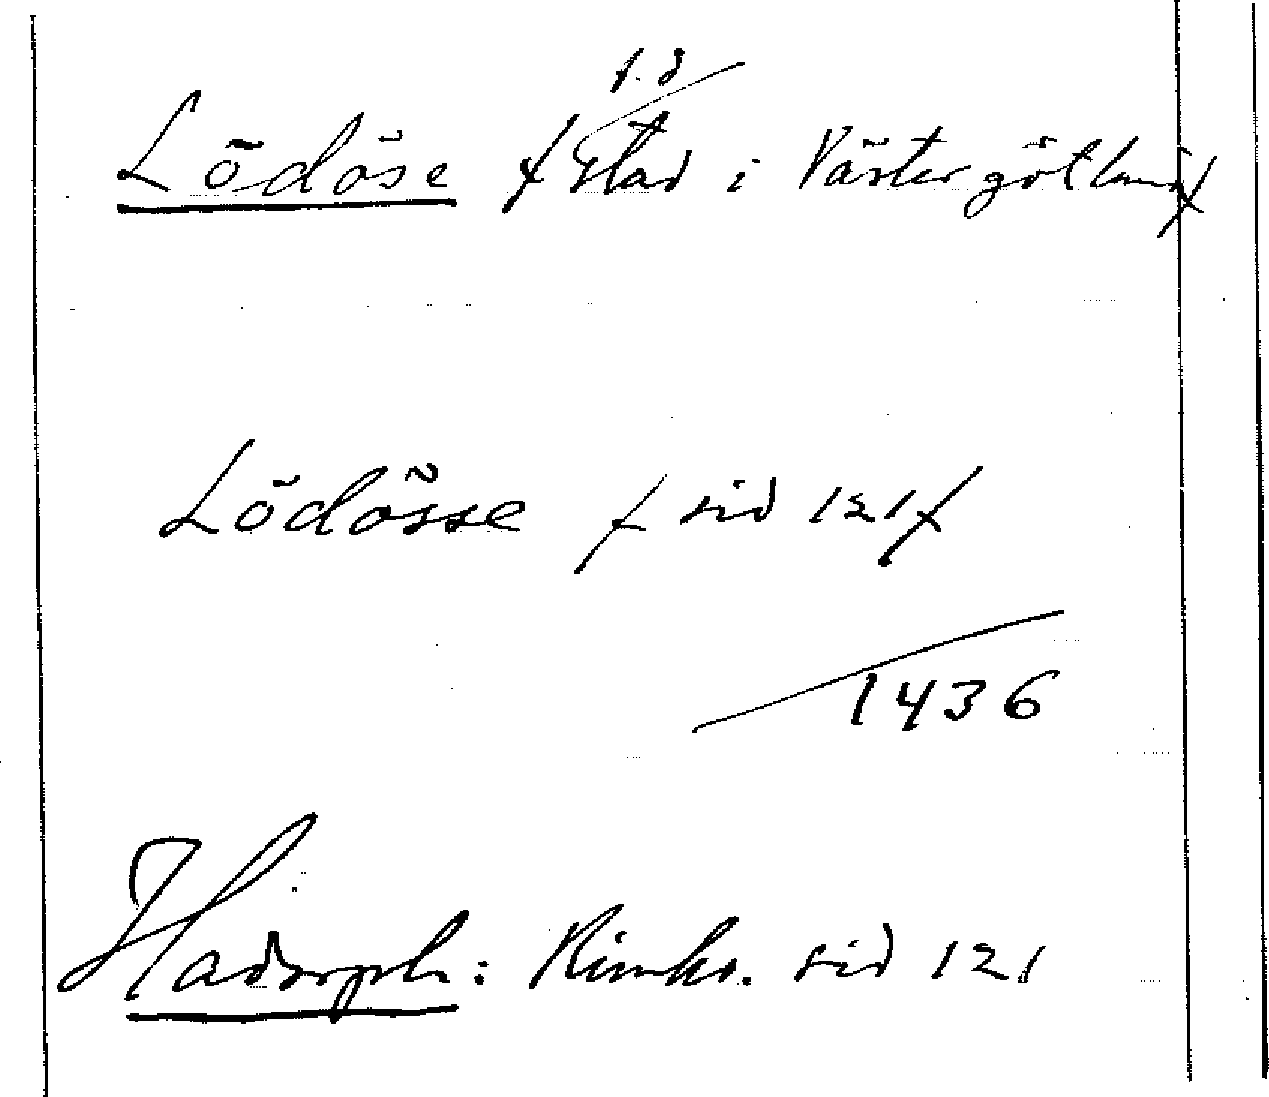 Lödöse f. d. stad i Västergötland
Lödösse sid 121
1436
Hadorph: Rimkr. sid 121